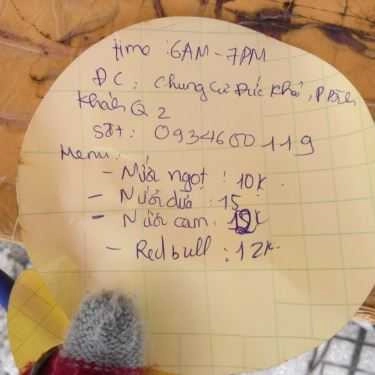 time : 6AM - 7PM
ĐC : Chung Cư Đức Khải, P Bình
Khánh Q 2
SĐT : 0934600119
Menu :
- Nước ngọt : 10K.
- Nước dừa : 15
- Nước cam : 12K
- Redbull : 12K.